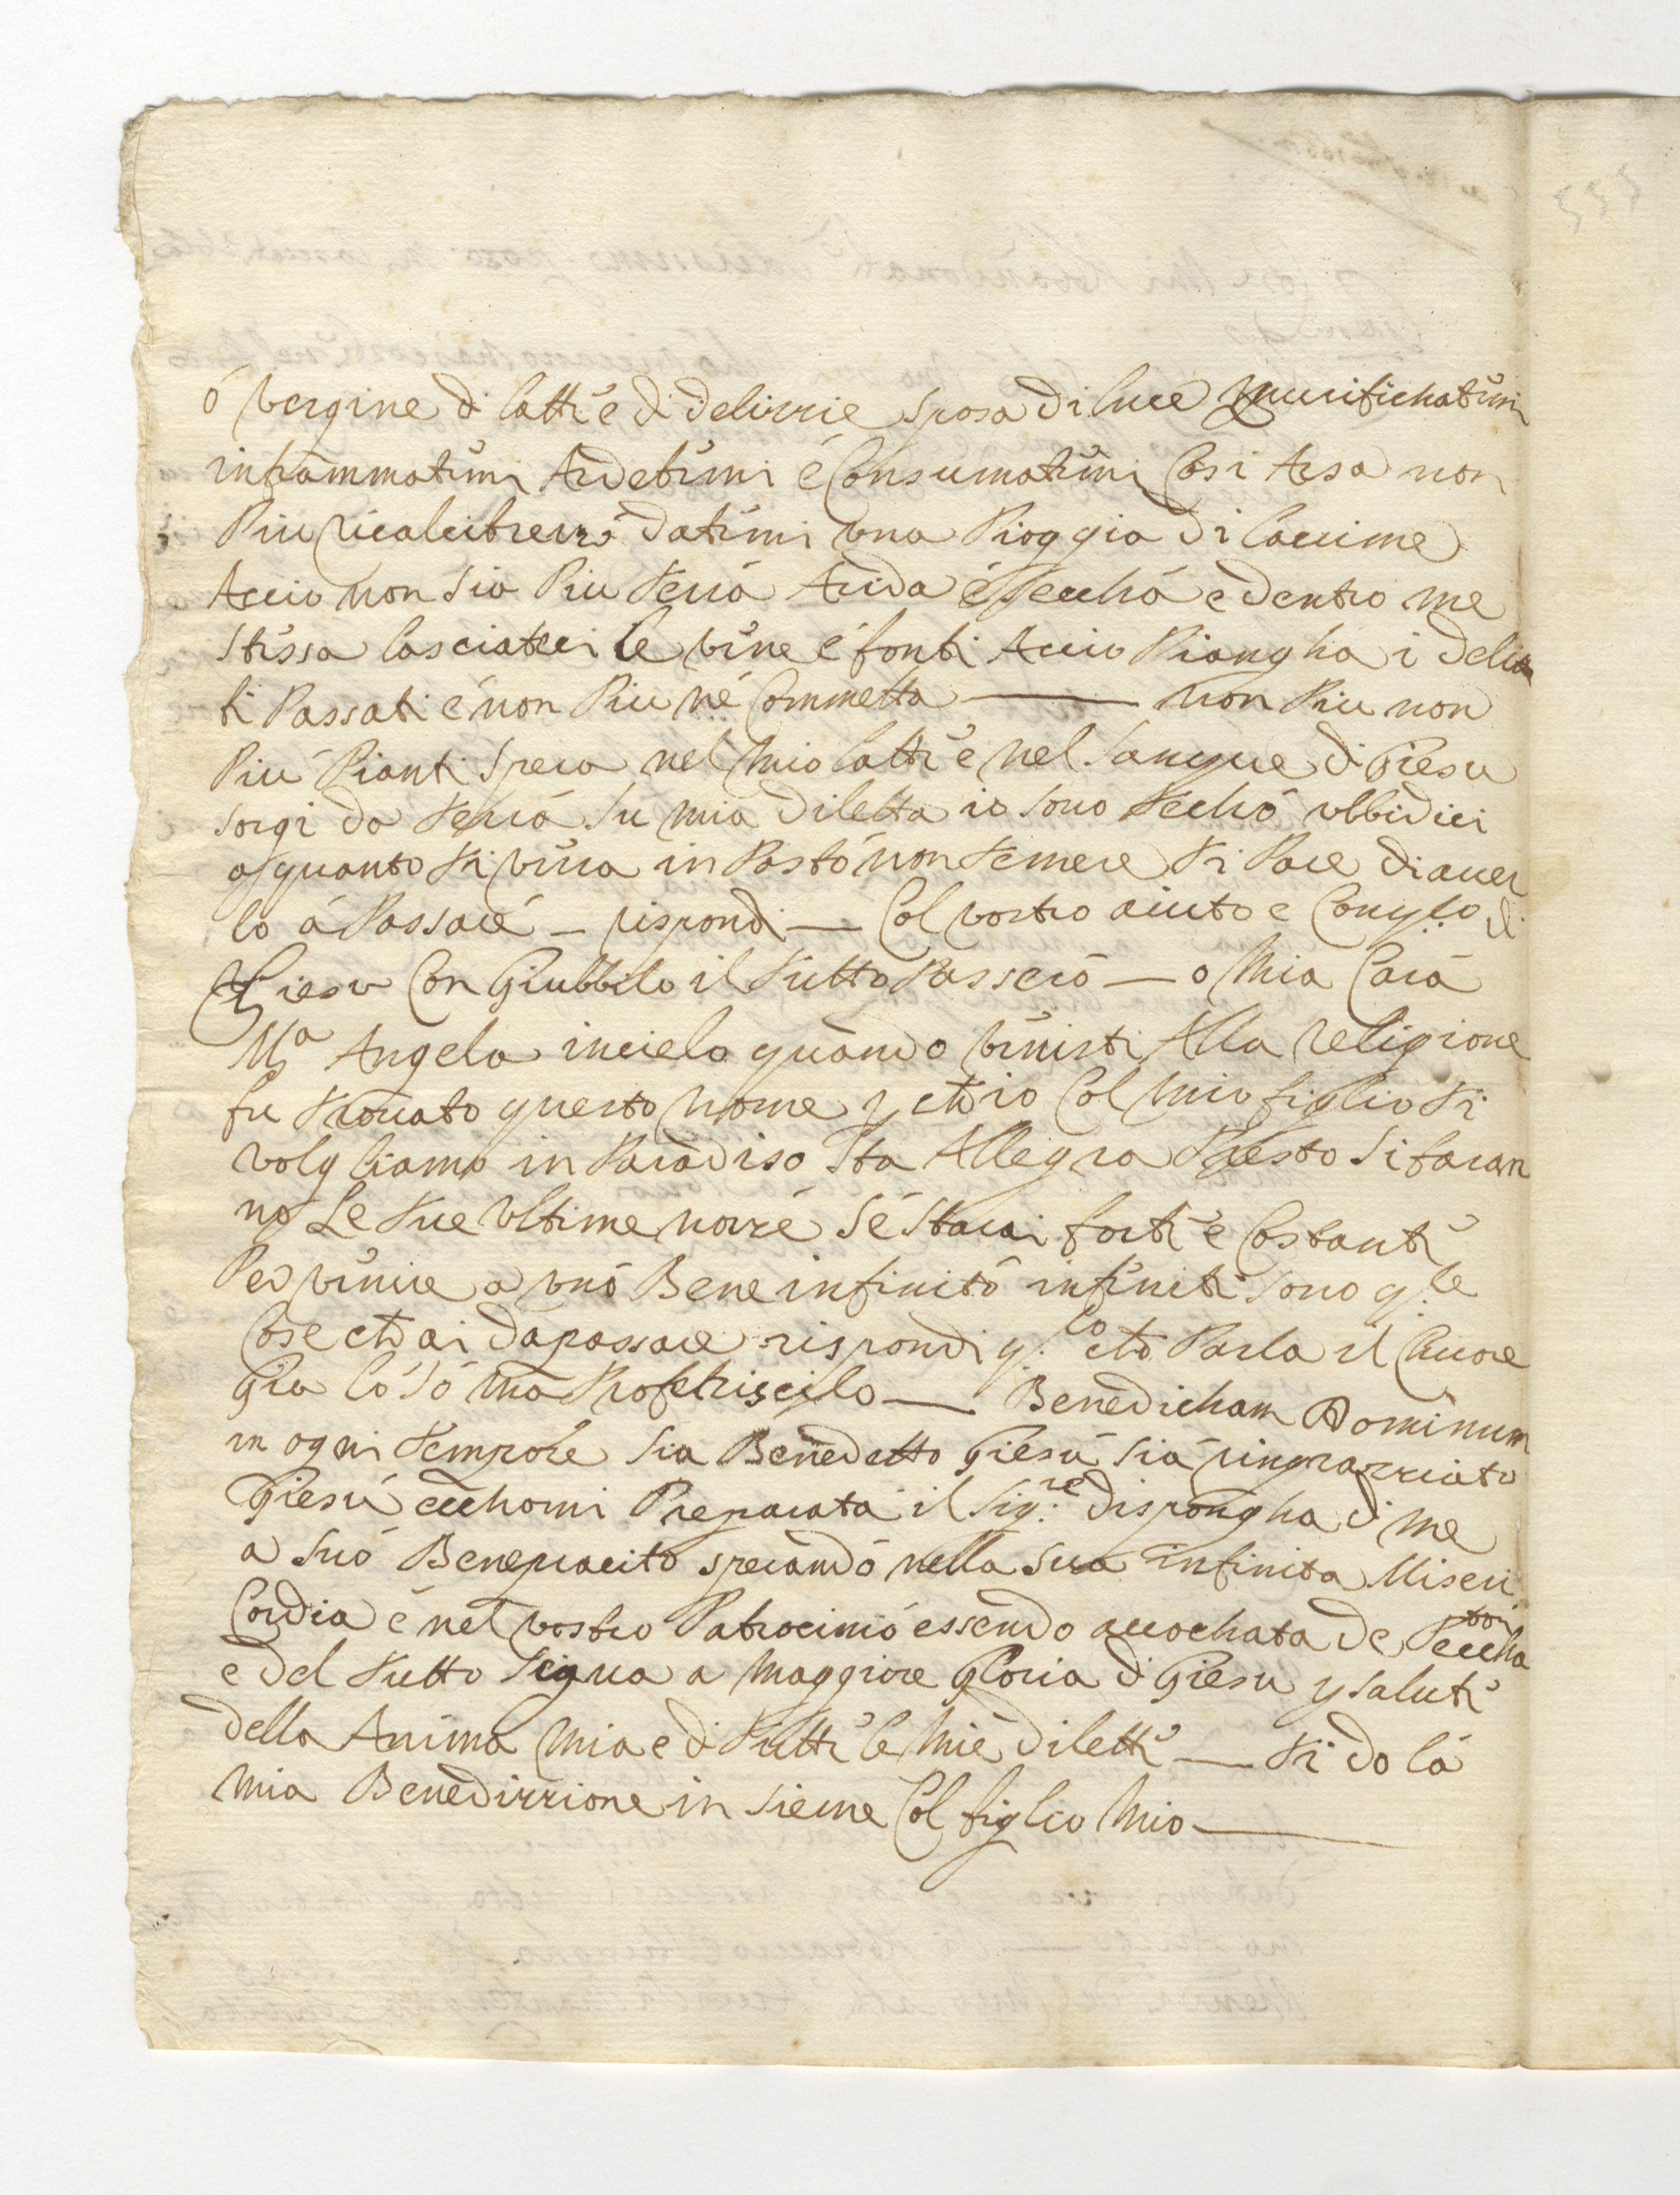 ó vergine di latte e di delizzie sposa di luce purifichatimi
infiammatimi Ardetimi é Consumatimi Cosi Arsa non
Piu ricalcitrerró datimi una Pioggia di lacrime
Acciò non sia Piu terrá Arida é secchá e dentro me
stessa lasciateci le vene e fonti Acciò Piangha i delit
ti Passati é non Piu né Commetta — non Piu non
Piú Pianti spera nel mio latte é nel sangue di Giesu
sorgi da terrá su mia diletta io sono techó ubbidici
a quanto ti verra in Postó non temere ti Pare di aver
lo á Passaré — rispondi — Col vostro aiuto e Con q.lo di
Giesu Con Giubbilo il tutto Passeró — o Mia Cará
Ma Angela in cielo quando venisti Alla religione
fu trovato questo nome p che io Col Mio figlio ti
volgliamo in Paradiso sta Allegra Presto si faran
no Le tue ultime nozzé sé starai forte é Costante
Per venire a unó Bene infinitó infinite sono q.le
Cose che ai da passare rispondi q.lo che Parla il Cuore
Gia ló só ma Proferiscilo — Benedicham Dominum
in ogni tempore sia Benedetto Giesú siá ringrazziato
Giesú ecchomi Preparata il Sig.re dispongha di me
a suó Beneplacito sperandó nella sua infinita Miseri
Cordia é nel vostro Patrocinió essendo acochata de Pecchatori
e del tutto indegna a Maggiore gloria di Giesu p salute
della Anima Mia e di tutte le Mie dilette — ti do lá
Mia Benedizzione in sieme Col figlio Mio —